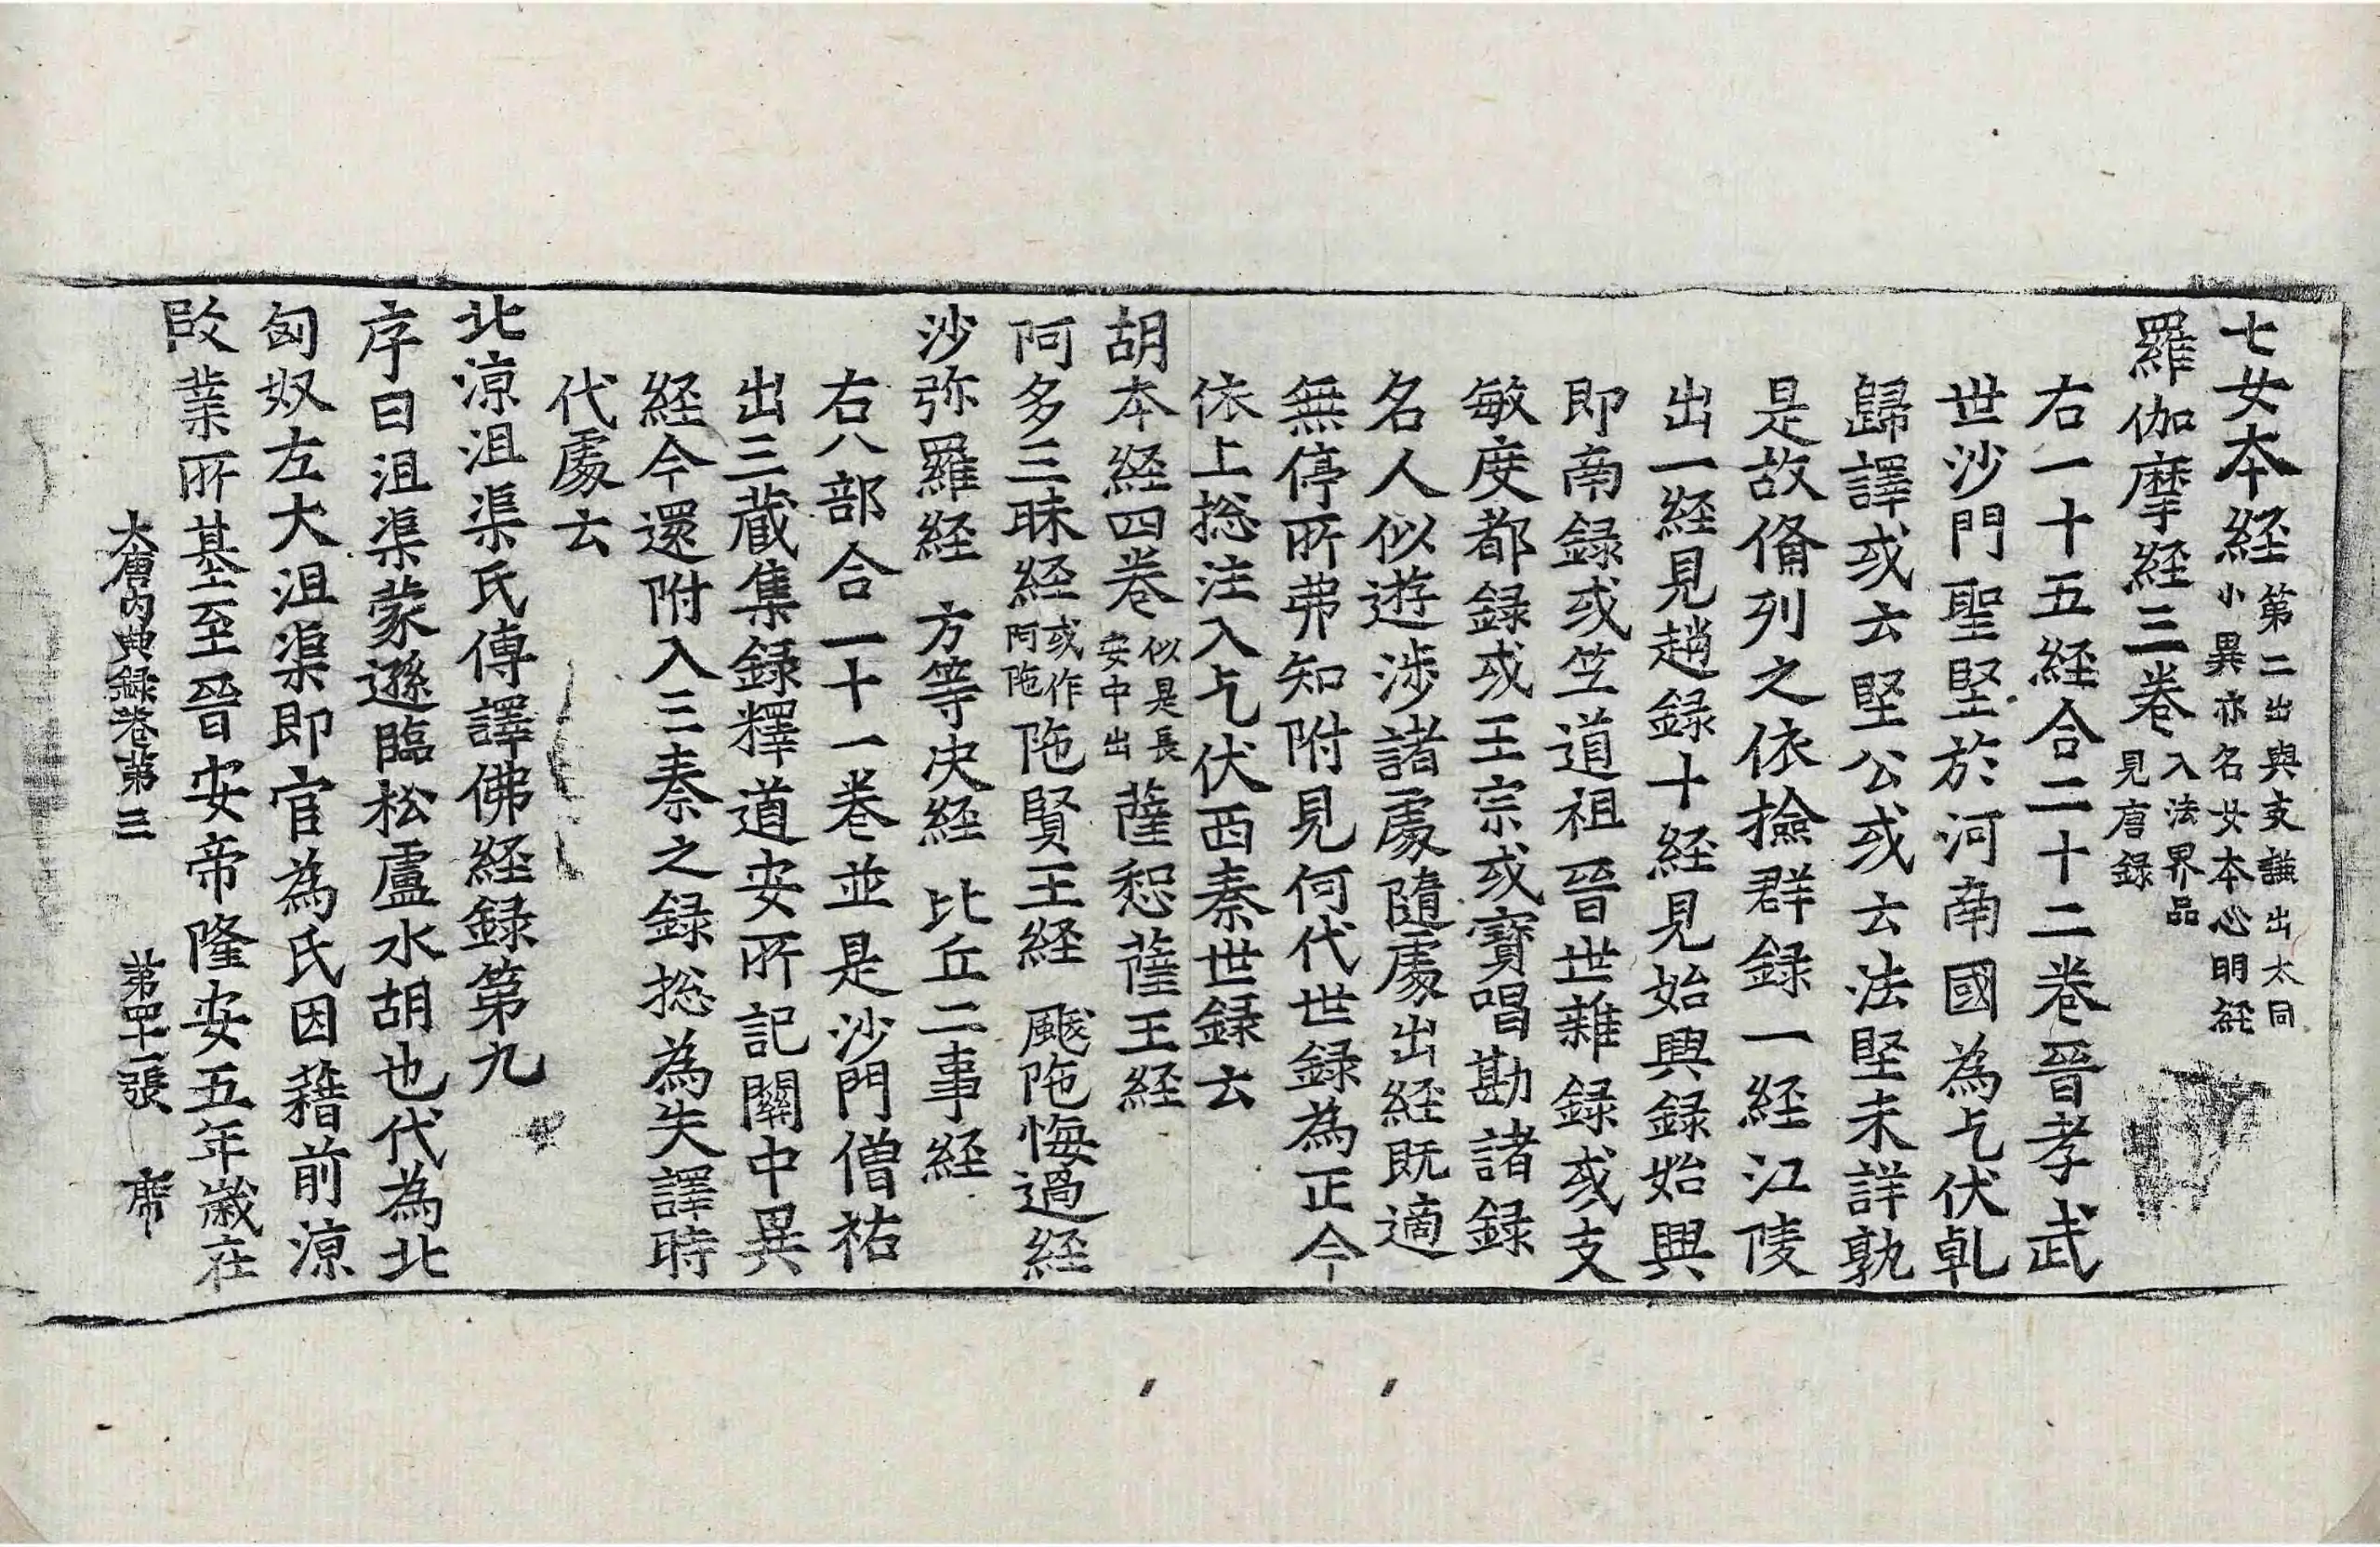 七女本経第二出與支謙出太同小異亦名女本心明経
羅伽摩経三巻入法界品見唐録
右一十五経合二十二巻晉孝武
世沙門聖堅於河南國為乞伏乹
歸譯或云堅公或云法堅未詳孰
是故俻列之依撿群録一経江陵
出一経見趙録十経見始興録始興
即南録或竺道祖晉世雜録或支
敏度都録或王宗或寶唱勘諸録
名人似遊涉諸處隨處出経既適
無停所弗知附見何代世録為正今
依上捴注入乞伏西秦世録云
胡本経四巻似是長安中出 薩恕薩王経
阿多三昧経或作阿陁 陁賢王経 颰陁悔過経
沙弥羅経 方等决経 比丘二事経
右八部合一十一巻並是沙門僧祐
出三蔵集録釋道安所記關中異
経今還附入三秦之録捴為失譯時
代處云
北涼沮渠氏傳譯佛経録第九
序曰沮渠蒙遜臨松盧水胡也代為北
匈奴左大沮渠即官為氏因藉前涼
段業所基至晉安帝隆安五年歳在
大唐内典録巻第三 第四十二張 席